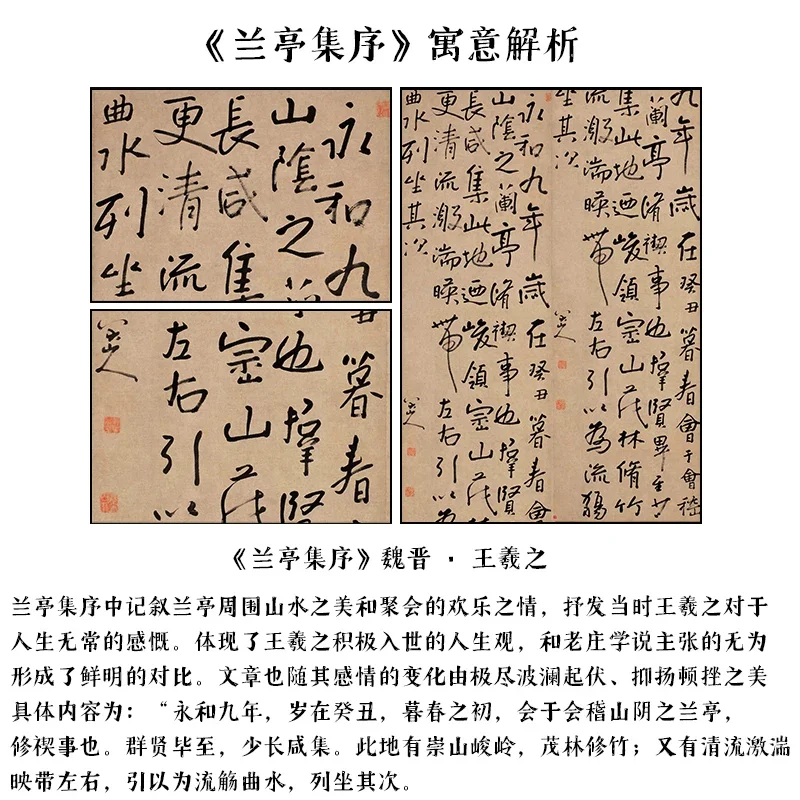 《兰亭集序》寓意解析
永和九
山陰之
長咸集
更清流
曲水列坐
丑暮春
也羣
崇山茂
左右引以
八大山人
九年歲在癸丑暮春會于會稽
蘭亭脩禊事也羣賢畢至少
集此地迺峻領崇山茂林脩竹
流激湍暎帶左右引以為流觴
坐其次
八大山人
永和九年歲在癸丑暮春
山陰之蘭亭脩禊事也羣賢
長咸集此地迺峻領崇山茂
更清流激湍暎帶左右引以
曲水列坐其次
八大山人
《兰亭集序》魏晋 · 王羲之
兰亭集序中记叙兰亭周围山水之美和聚会的欢乐之情，抒发当时王羲之对于
人生无常的感慨。体现了王羲之积极入世的人生观，和老庄学说主张的无为
形成了鲜明的对比。文章也随其感情的变化由极尽波澜起伏、抑扬顿挫之美
具体内容为：“永和九年，岁在癸丑，暮春之初，会于会稽山阴之兰亭，
修禊事也。群贤毕至，少长咸集。此地有崇山峻岭，茂林修竹；又有清流激湍
映带左右，引以为流觞曲水，列坐其次。